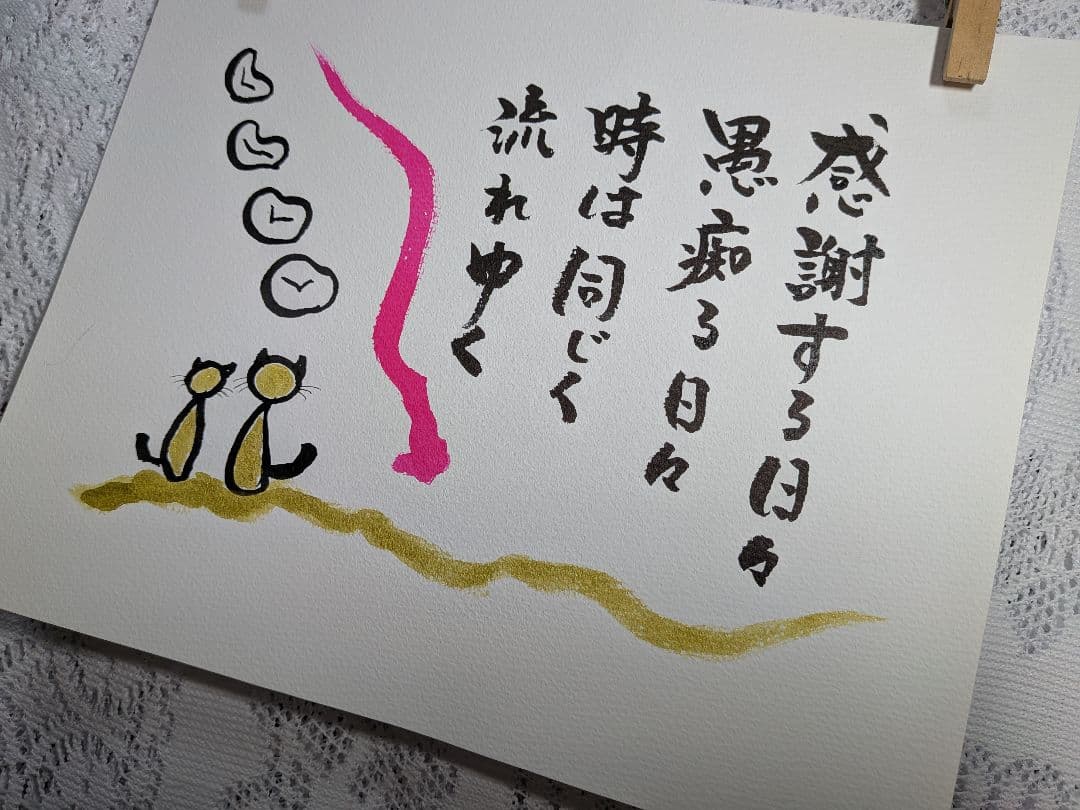 感謝する日々
愚痴る日々
時は同じく
流れゆく